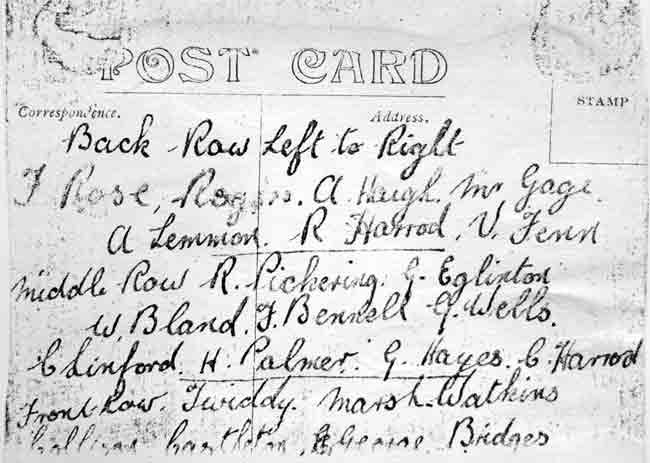 POST CARD
STAMP
Correspondence. Address.
Back Row Left to Right
F Rose, Rogers. A Haigh. Mr Gage.
A Lemmon. R Harrod. V. Fenn
Middle Row R. Pickering. G. Eglinton
W. Bland. F. Bennell G. Wells.
C Linford. H. Palmer. G. Hayes. C. Harrod
Front Row. Twiddy. Marsh. Watkins
George Bridges